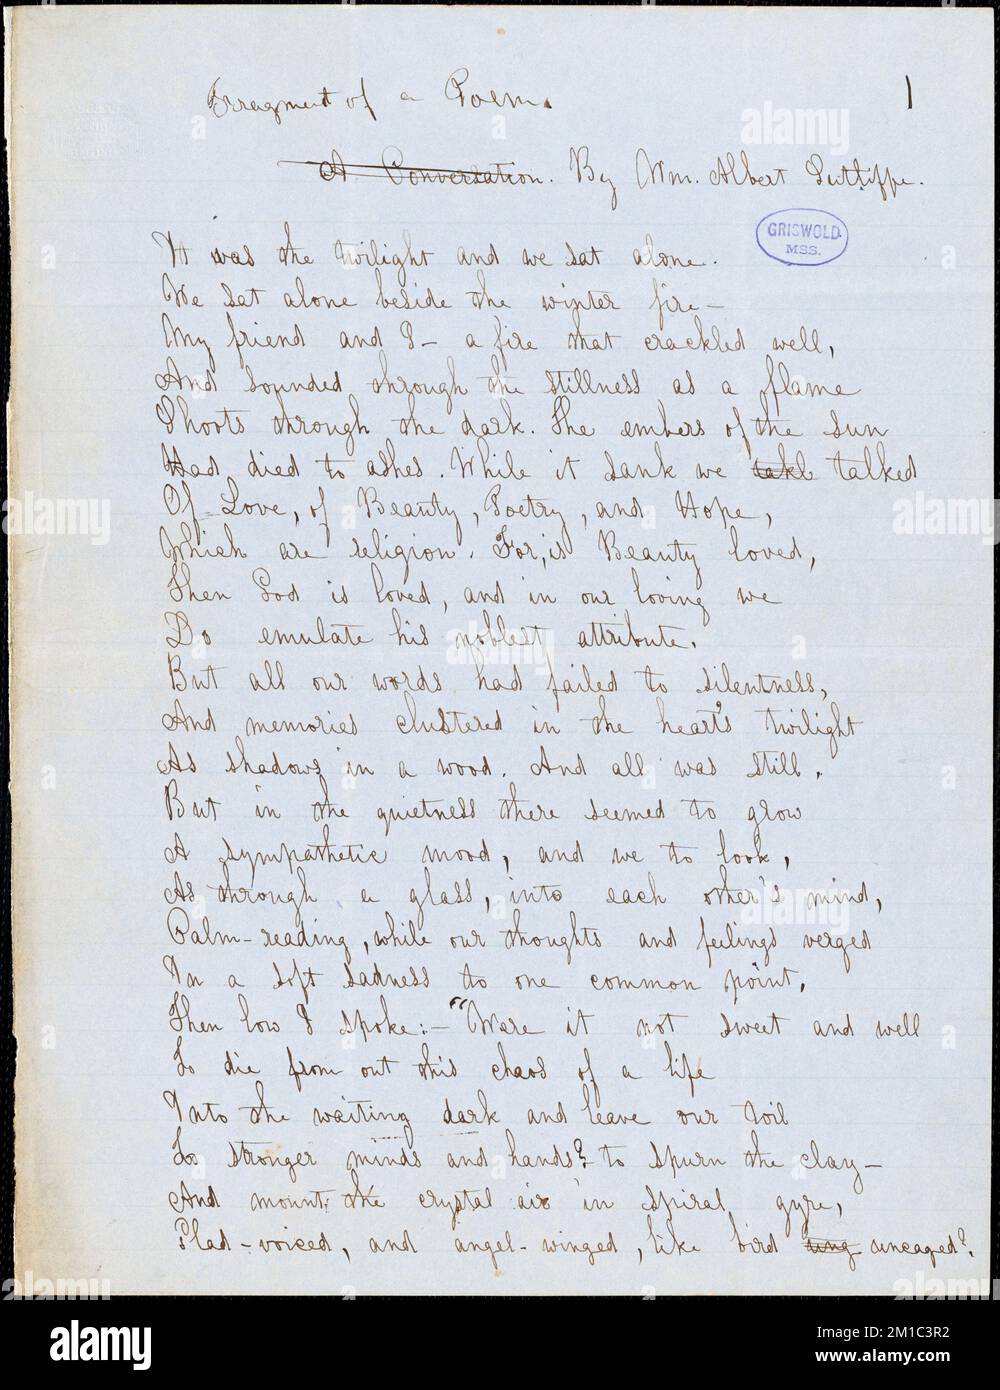 Fragment of a Poem.
1
A Conversation. By Wm. Albert Sutliffe.
GRISWOLD
MSS.
It was the twilight and we sat alone.
We sat alone beside the winter fire—
My friend and I— a fire that crackled well,
And sounded through the stillness as a flame
Shoots through the dark. The embers of the sun
Had died to ashes. While it sank we talked
Of Love, of Beauty, Poetry, and Hope,
Which are religion. For, is Beauty loved,
Then God is loved, and in our loving we
Do emulate his noblest attribute.
But all our words had failed to silentness,
And memories clustered in the heart's twilight
As shadows in a wood. And all was still.
But in the quietness there seemed to grow
A sympathetic mood, and we to look,
As through a glass, into each other's mind,
Palm-reading, while our thoughts and feelings verged
In a soft sadness to one common point.
Then low I spoke:— "Were it not sweet and well
To die from out this chaos of a life
Into the waiting dark and leave our toil
To stronger minds and hands?— to spurn the clay—
And mount the crystal air in spiral gyre,
Glad-voiced, and angel-winged, like bird uncaged?
alamy
Image ID: 2M1C3R2
www.alamy.com